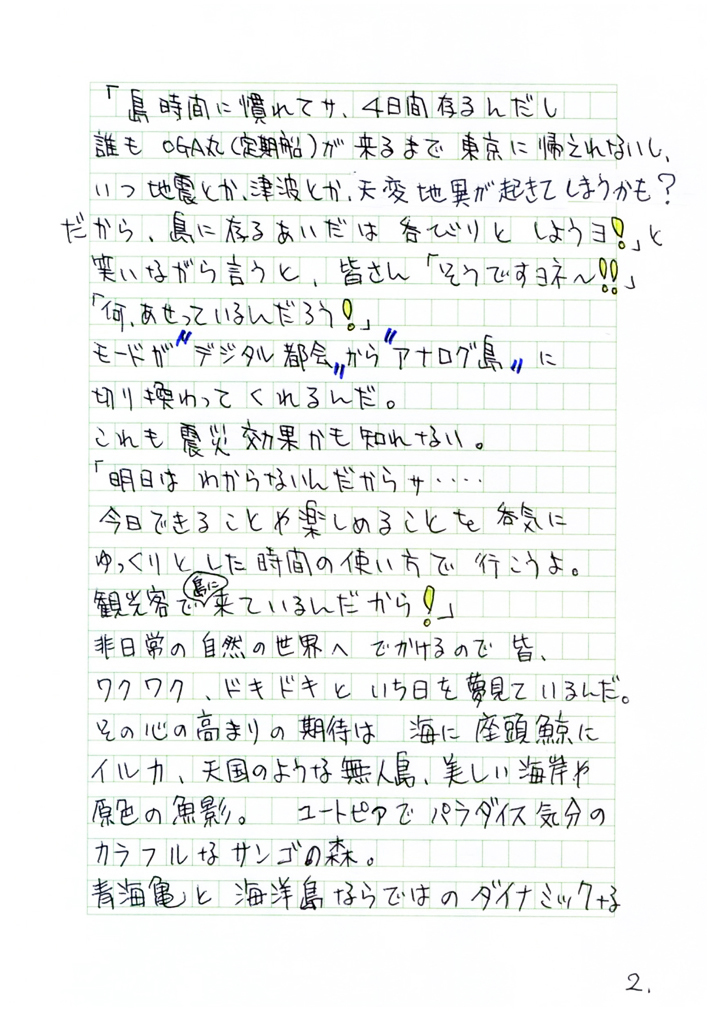 「島時間に慣れてサ、4日間存るんだし
誰も OGA丸(定期船)が 来るまで 東京に 帰えれないし、
いつ 地震とか、津波とか、天変地異が起きてしまうかも?
だから、島に存るあいだは 呑びりと しようヨ!」と
笑いながら言うと、皆さん「そうですヨネ〜!!」
「何、あせっているんだろう!」
モードが〝デジタル都会〟から〝アナログ島〟に
切り換わってくれるんだ。
これも 震災効果かも知れない。
「明日は わからないんだからサ・・・・
今日できることや楽しめることを 呑気に
ゆっくりとした時間の使い方で 行こうよ。
観光客で島に来ているんだから!」
非日常の自然の世界へ でかけるので 皆、
ワクワク、ドキドキと いち日を夢見ているんだ。
その心の高まりの期待は 海に 座頭鯨に
イルカ、天国のような無人島、美しい海岸や
原色の魚影。 ユートピアで パラダイス気分の
カラフルなサンゴの森。
青海亀と 海洋島ならではの ダイナミックな
2.